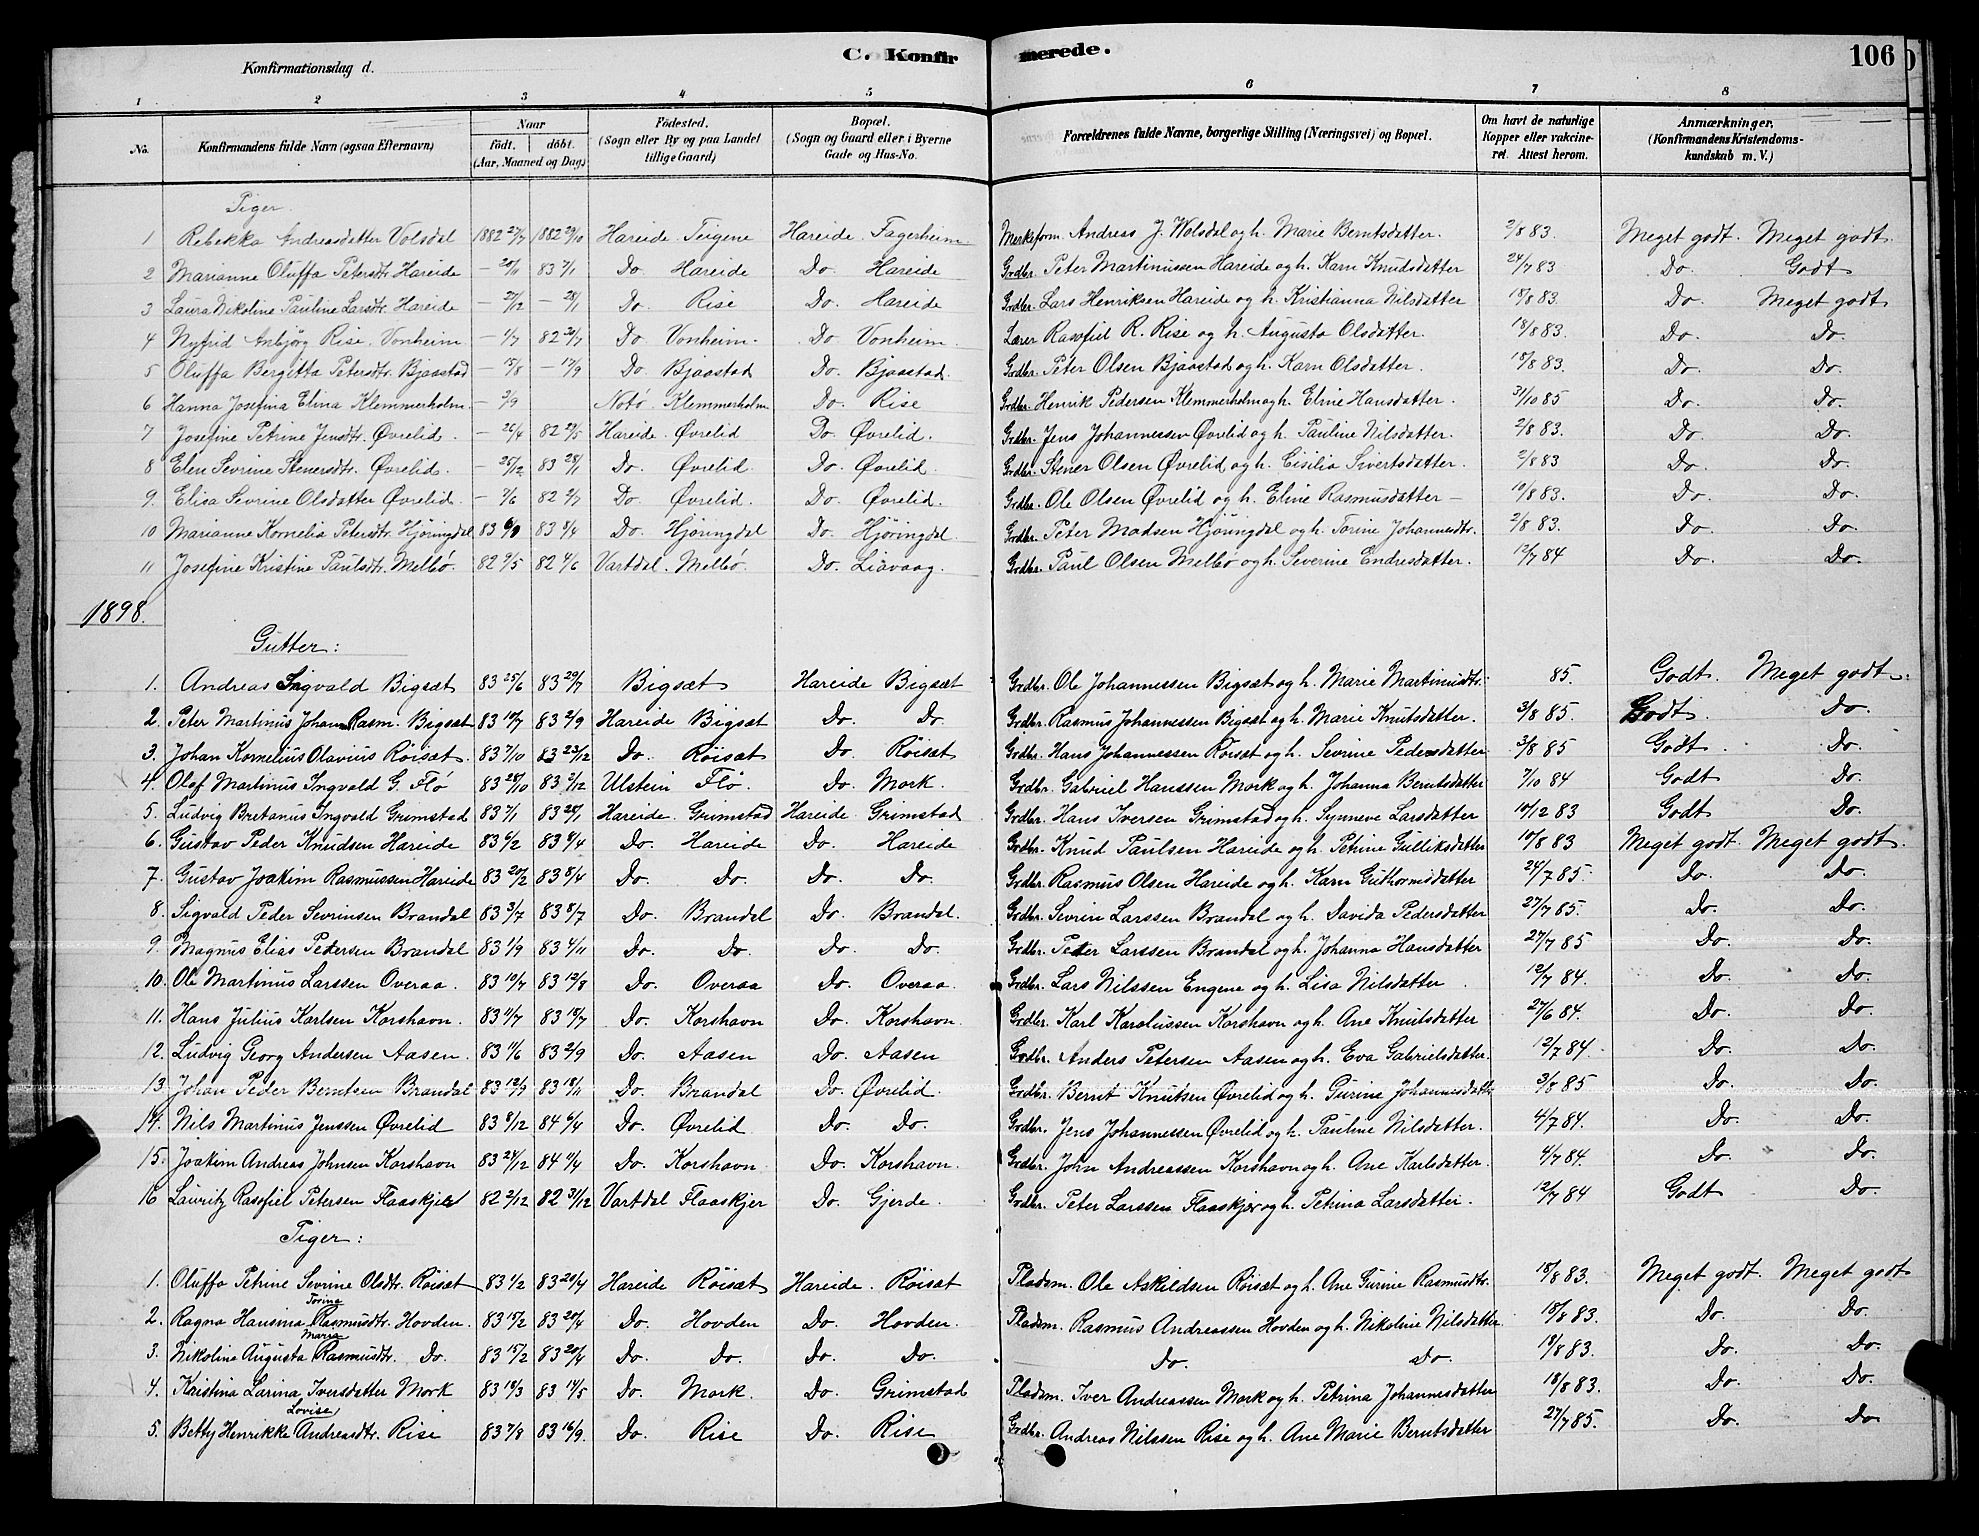 C. Konfirmerede. 106
Konfirmationsdag d.
1 2 3 4 5 6 7 8
No. Konfirmandens fulde Navn (ogsaa Efternavn) Naar födt. döbt. (Aar, Maaned og Dag) Födested. (Sogn eller By og paa Landet tillige Gaard) Bopæl. (Sogn og Gaard eller i Byerne Gade og Hus-No. Forældrenes fulde Navne, borgerlige Stilling (Næringsvei) og Bopæl. Om havt de naturlige Kopper eller vakcineret. Attest herom. Anmærkninger, (Konfirmandens Kristendomskundskab m. V.)
Piger.
1 Rebekka Andreasdatter Volsdal 1882 27/7 1882 29/10 Hareide Teigene Hareide Fagerheim Andreas J. Wolsdal og h. Marie Berntsdatter. 2/8 83. Meget godt. Meget godt.
2 Marianne Oluffa Petersdtr. Hareide – 20/11 83 7/1 Do Hareide Do. Hareide Grdbr. Peter Martinussen Hareide og h. Karn Knudsdatter 24/7 83 Do. Godt
3 Laura Nikoline Pauline Larsdtr. Hareide – 27/12 – 28/1 Do Rise Do. Hareide Grdbr. Lars Henriksen Hareide og h. Kristianna Nilsdatter 18/8 83. Do. Meget godt
4 Nyfrid Anbjørg Rise. Vonheim – 1/7 82 30/7 Do Vonheim. Do Vonheim Lærer Rasofiel R. Rise og h. Augusta Olsdatter. 18/8 83. Do. Do.
5 Oluffa Bergitta Petersdtr. Bjaastad – 15/8 – 17/9 Do. Bjaastad Do. Bjaastad. Grdbr. Peter Olsen Bjaastad og h. Karn Olsdatter. 18/8 83. Do. Do.
6 Hanna Josefina Elina Klemmerholm. – 3/9 Notø. Klemmerholm Do. Rise Grdbr. Henrik Pedersen Klemmerholm og h. Eline Hansdatter. 31/10 85 Do. Do.
7 Josefine Petrine Jensdtr. Øvrelid. – 26/4 82 29/5 Hareide. Øvrelid Do. Øvrelid. Grdbr. Jens Johannessen Øvrelid og h. Pauline Nilsdatter. 2/8 83. Do. Do.
8 Elen Sevrine Stenersdtr. Øvrelid. – 25/12 83 28/1 Do. Øvrelid. Do. Øvrelid. Grdbr. Stener Olsen Øvrelid og h. Cisilia Sivertsdatter. 2/8 83 Do. Do.
9. Elisa Sevrine Olsdatter Øvrelid. – 7/6 82 2/7 Do. Øvrelid. Do. Øvrelid. Grdbr. Ole Olsen Øvrelid og h. Eline Rasmusdatter – 10/8 83. Do. Do.
10 Marianne Kornelia Petersdtr. Hjøringdal 83 83 8/4 Do. Hjøringdal Do. Hjøringdal. Grdbr. Peter Madsen Hjøringdal og h. Torine Johannesdtr. 2/8 83. Do. Do.
11 Josefine Kristine Paulsdtr. Melbø. 82 9/5 82 4/6 Vartdal. Melbø. Do. Liavaag. Grdbr. Paul Olsen Melbø og h. Severine Endresdatter. 12/7 84 Do. Do.
1898.
Gutter:
1. Andreas Ingvald Bigsæt 83 25/6 83 29/7 Bigsæt Hareide Bigsæt Grdbr. Ole Johannessen Bigsæt og h. Marie Martinusdtr. 85. Godt. Meget godt.
2. Peter Martinus Johan Rasm. Bigsæt 83 19/7 83 2/9 Hareide Bigsæt Do. Do Grdbr. Rasmus Johannessen Bigsæt og h. Marie Knutsdatter. 3/8 85. Godt. Do.
3. Johan Kornelius Olavius Røisæt. 83 7/10 83 23/12 Do. Røisæt Do. Røisæt Grdbr. Hans Johannessen Røisæt og h. Sevrine Pedersdatter 3/8 85 Godt. Do.
4. Olaf Martinus Ingvald G. Flø 83 28/10 83 2/12 Ulstein Flø. Do. Mork. Grdbr. Gabriel Hanssen Mork og h. Johanna Berntsdatter 7/10 84 Godt Do.
5. Ludvig Bretanus Ingvald Grimstad 83 7/1 83 28/1 Hareide. Grimstad Hareide. Grimstad Grdbr. Hans Iversen Grimstad og h. Synneve Larsdatter 19/12 83 Godt Do.
6. Gustav Peder Knudsen Hareide 83 6/2 83 8/4 Do. Hareide Do. Hareide Grdbr. Knud Paulsen Hareide og h. Petrine Gulliksdatter 10/8 83 Meget godt. Meget godt.
7. Gustav Joakim Rasmussen Hareide 83 20/2 83 8/4 Do. Do. Do. Do. Grdbr. Rasmus Olsen Hareide og h. Karn Guthormsdatter 24/7 85. Do. Do.
8. Sigvald Peder Sevrinsen Brandal 83 3/7 83 8/7 Do. Brandal Do. Brandal. Grdbr. Sevrin Larssen Brandal og h. Davida Pedersdatter 27/7 85. Do. Do.
9. Magnus Elias Pedersen Brandal 83 1/9 83 4/11 Do. Do. Do. Do. Grdbr. Peder Larssen Brandal og h. Johanna Hansdatter 27/7 85 Do. Do.
10. Ole Martinus Larssen Overaa. 83 10/7 83 12/8 Do. Overaa Do. Overaa. Grdbr. Lars Nilssen Engene og h. Lisa Nilsdatter 12/7 84. Do. Do.
11. Hans Julius Karlsen Korshavn. 83 11/7 83 18/7 Do. Korshavn Do. Korshavn. Grdbr. Karl Karolussen Korshavn og h. Ane Knutsdatter 27/6 84. Do. Do.
12. Ludvig Georg Andersen Aasen. 83 11/6 83 2/9 Do. Aasen Do. Aasen Grdbr. Anders Petersen Aasen og h. Eva Gabrielsdatter. 12/7 84. Do. Do.
13. Johan Peder Berntsen Brandal 83 12/9 83 18/11 Do. Brandal Do. Øvrelid. Grdbr. Bernt Knutsen Øvrelid og h. Gurine Johannesdatter 3/8 85 Do. Do.
14. Nils Martinus Jenssen Øvrelid 83 8/12 84 6/4 Do. Øvrelid Do. Do. Grdbr. Jens Johannessen Øvrelid og h. Pauline Nilsdatter. 4/7 84. Do. Do.
15. Joakim Andreas Johnsen Korshavn 83 24/12 84 11/4 Do. Korshavn. Do. Korshavn. Grdbr. John Andreassen Korshavn og h. Ane Karlsdatter. 4/7 84. Do. Do.
16 Lauritz Rasofiel Petersen Flaaskjer 82 2/12 82 31/12 Vartdal Flaaskjer Do. Gjerde. Grdbr. Peter Larssen Flaaskjer og h. Petrina Larsdatter. 12/7 84 Godt Do.
Piger:
1. Oluffa Petrine Sevrine Olsdtr. Røisæt 83 1/2 83 20/4 Hareide Røisæt Hareide. Røisæt Pladsm. Ole Askildsen Røisæt og h. Ane Gurine Rasmusdtr. 18/8 83. Meget godt. Meget godt
2. Ragna Hansina Torina Rasmusdtr. Hovden. 83 15/2 83 20/4 Do. Hovden Do. Hovden. Pladsm. Rasmus Andreassen Hovden og h. Nikoline Nilsdatter 18/8 83. Do. Do.
3. Nikolina Augusta Maria Rasmusdtr. Do. 83 15/2 83 20/4 Do. Do. Do. Do. Do. Do. 18/8 83. Do. Do.
4. Kristina Larina Iversdatter Mork 83 18/3 83 14/5 Do. Mork. Do. Grimstad Pladsm. Iver Andreassen Mork og h. Petrina Johannesdatter 18/8 83. Do. Do.
5. Betty Henrikke Lovise Andreasdtr. Rise 83 7/8 83 16/9. Do. Rise Do. Rise Grdbr. Andreas Nilssen Rise og h. Ane Marie Berntsdatter 27/7 85. Do. Do